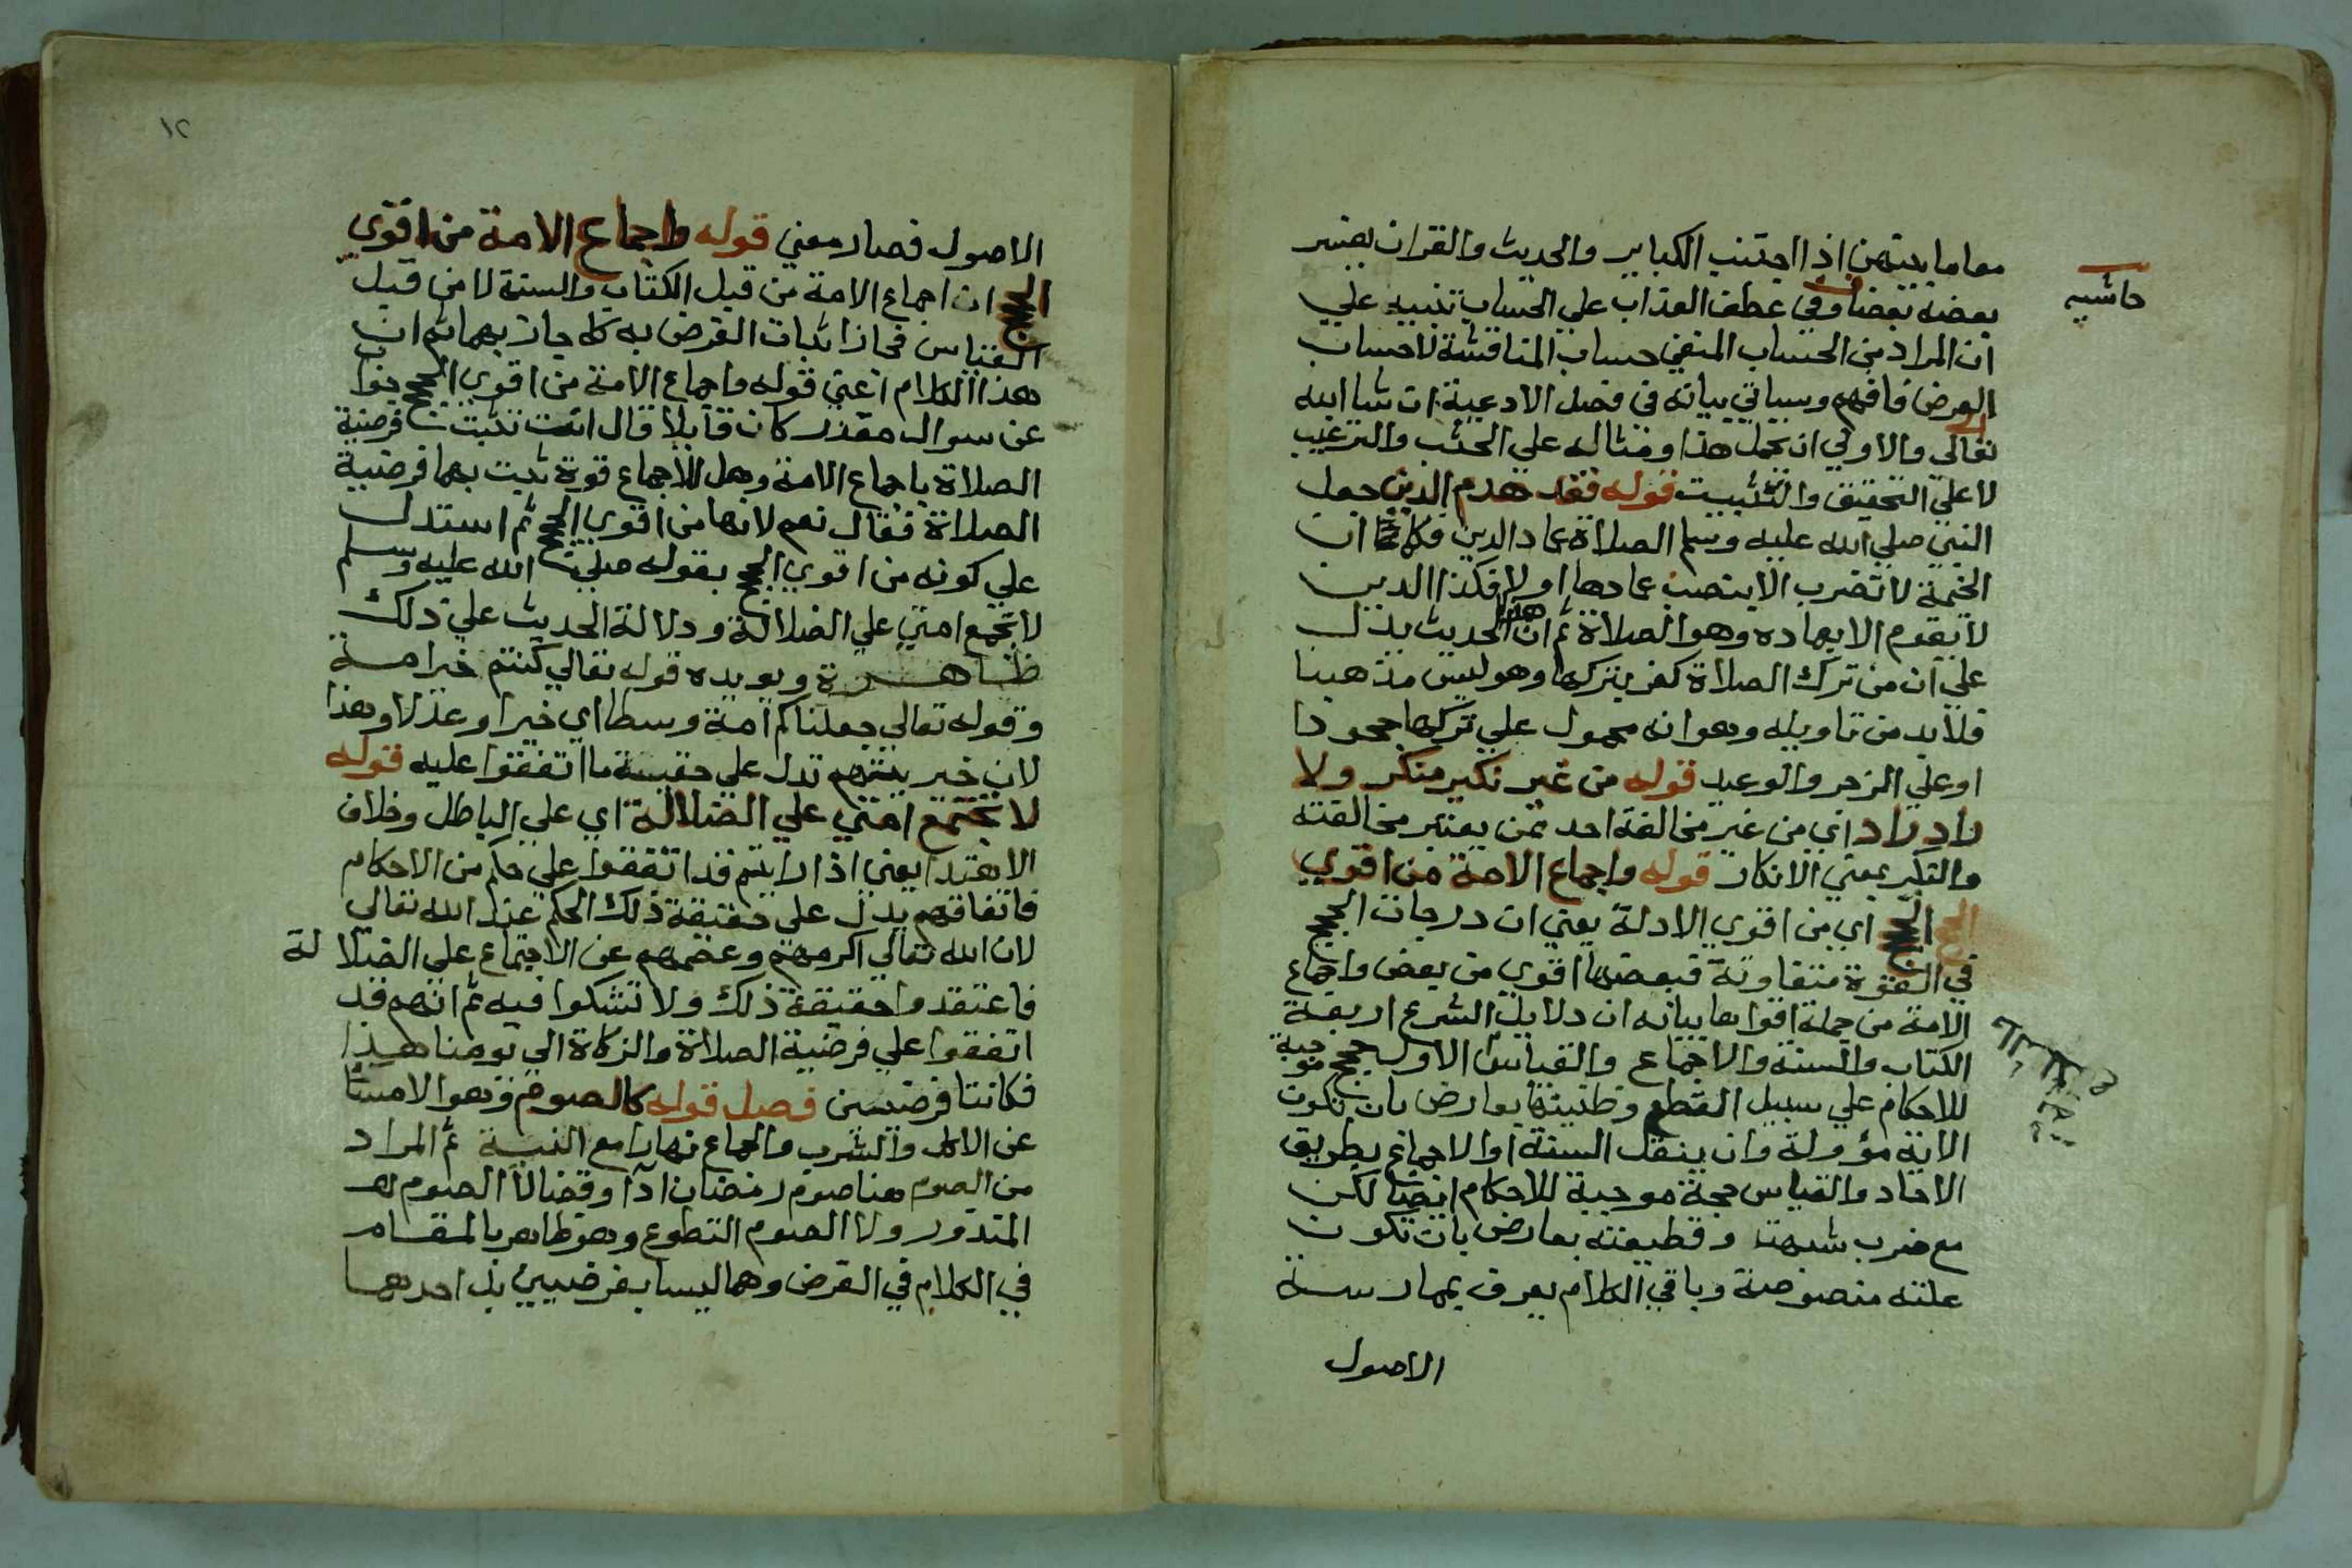 معاما بينهن اذا اجتنب الكباير والحديث والقران يفسر
حاشيه
بعضه بعضا وفي عطف العذاب علي الحساب تنبيه علي
ان المراد من الحساب المنفي حساب المناقشة لا حساب
العرض فافهم وسياتي بيانه في فصل الادعية ان شا الله
تعالي والاولي ان يحمل هذا ومثاله علي الحث والترغيب
لا علي التحقيق والتثبيت قوله فقد هدم الدين جعل
النبي صلي الله عليه وسلم الصلاة عماد الدين فكما ان
الخيمة لا تضرب الا بنصب عمادها اولا فكذا الدين
لا يقوم الا بعماده وهو الصلاة ثم ان هذا الحديث يدل
علي ان من ترك الصلاة كفر بتركها وهو ليس مذهبنا
فلا بد من تاويله وهو انه محمول علي تركها جحودا
او علي الزجر والوعيد قوله من غير نكير منكر ولا
راد راد اي من غير مخالفة احد ممن يعتبر مخالفته
والنكير بمعني الانكار قوله واجماع الامة من اقوي
الحجج اي من اقوي الادلة يعني ان درجات الحجج
في القوة متفاوتة فبعضها اقوي من بعض واجماع
الامة من جملة اقواها بيانه ان دلايل الشرع اربعة
الكتاب والسنة والاجماع والقياس الاول حجج موجبة
للاحكام علي سبيل القطع وظنيتها بعارض بان تكون
الاية مؤولة وان ينقل السنة او الاجماع بطريق
الاحاد والقياس حجة موجبة للاحكام ايضا لكن
مع ضرب شبهة وقطيعته بعارض بان تكون
علته منصوصة وباقي الكلام يعرف بممارسة
الاصول
١٢
الاصول فصار معني قوله واجماع الامة من اقوي
الحجج ان اجماع الامة من قبل الكتاب والسنة لا من قبل
القياس فجاز اثبات الفرض به كما جاز بهما ثم ان
هذا الكلام اعني قوله واجماع الامة من اقوي الحجج جوا
عن سوال مقدر كان قايلا قال اثبت فرضية
الصلاة باجماع الامة وهل للاجماع قوة يثبت بها فرضية
الصلاة فقال نعم لانها من اقوي الحجج ثم استدل
علي كونه من اقوي الحجج بقوله صلي الله عليه وسلم
لا تجمع امتي علي الضلالة ودلالة الحديث علي ذلك
ظاهرة ويويده قوله تعالي كنتم خير امة
وقوله تعالي جعلناكم امة وسطا اي خيرا وعدلا وهذا
لان خيريتهم تدل علي حقيية ما اتفقوا عليه قوله
لا تجتمع امتي علي الضلالة اي علي الباطل وخلاف
الاهتدا يعني اذا رايتم قد اتفقوا علي حكم من الاحكام
فاتفاقهم يدل علي حقيقة ذلك الحكم عند الله تعالي
لان الله تعالي اكرمهم وعصمهم عن الاجتماع علي الضلالة
فاعتقدوا حقيقة ذلك ولا تشكوا فيه ثم انهم قد
اتفقوا علي فرضية الصلاة والزكاة الي يومنا هذا
فكانتا فرضيتين فصل قوله كالصوم وهو الامساك
عن الاكل والشرب والجماع نهارا مع النية ثم المراد
من الصوم هنا صوم رمضان ادا وقضا لا الصوم
المنذور ولا الصوم التطوع وهو ظاهر بالمقام
في الكلام في الفرض وهما ليسا بفرضيين بل احدهما